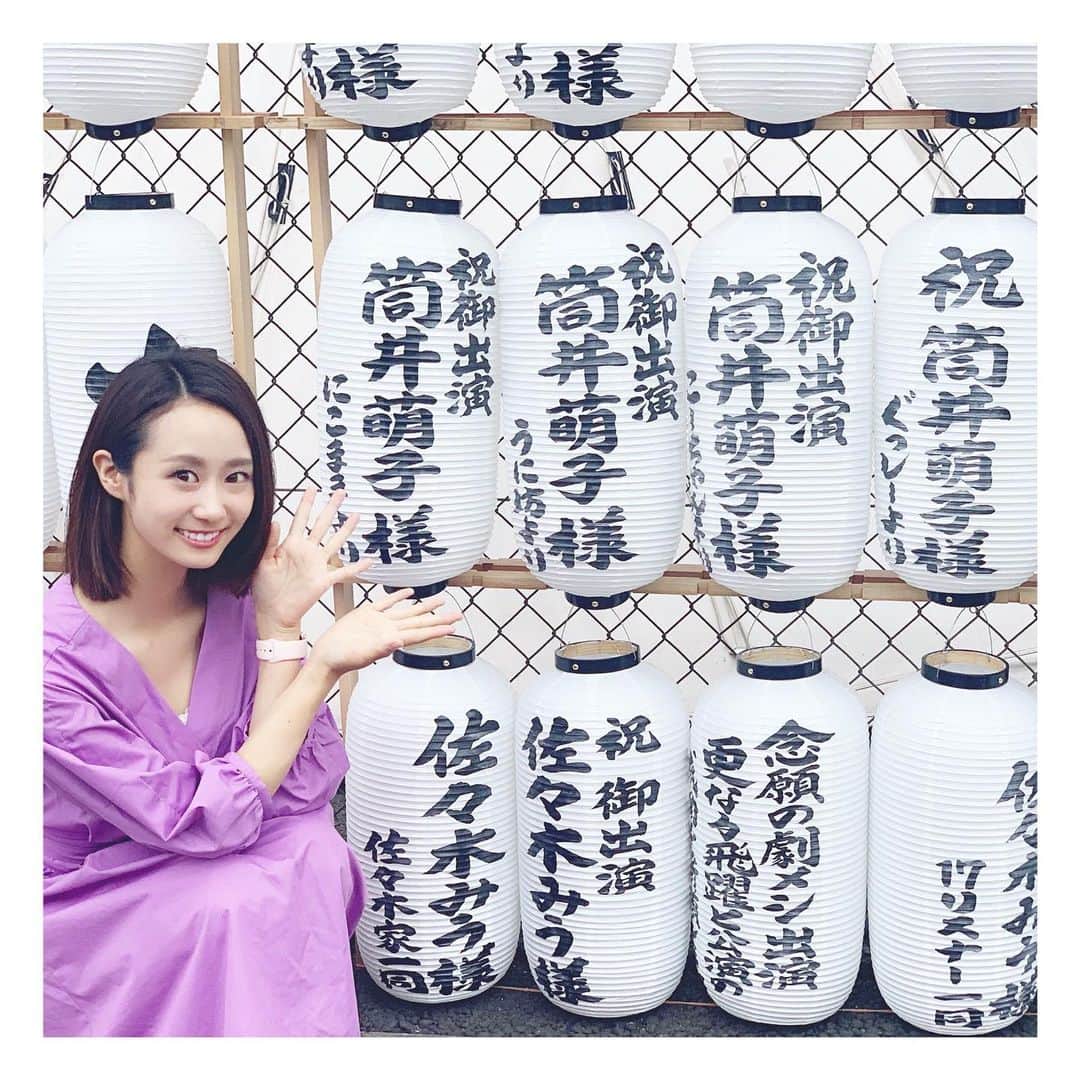 より
様
より
様
祝御出演
筒井萌子様
祝御出演
筒井萌子様
うに坊より
祝御出演
筒井萌子様
祝
筒井萌子様
ぐっしーより
佐々木みう様
佐々木家一同
祝 御出演
佐々木みう様
念願の劇メシ出演
更なる飛躍と公演の
佐々木み
17リスナー一同